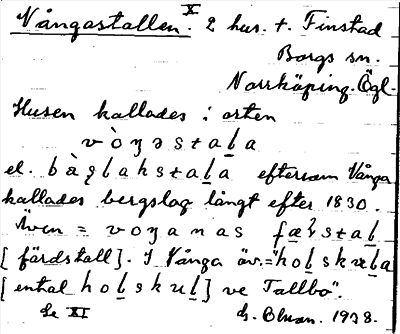 Vångastallen. X 2 hus. t. Finstad
Borgs sn.
Norrköping. Ögl.
Husen kallades i orten
vòŋəstaḷa
el. bàʒḷahstaḷa eftersom Vånga
kallades bergslag långt efter 1830.
Även = voŋanas fæʀstaḷ
[färdstall]. I Vånga äv. = "hoḷskuḷa
[ental hoḷskuḷ] ve Tallbo".
Se XI 1938.